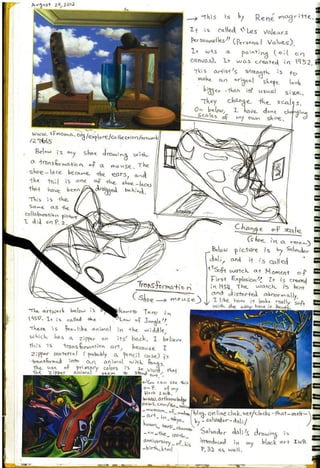 August 29, 2012
→ This is by René magritte.
It is called "Les Valeurs
Personnelles" (Personal Values).
It was a painting (oil on
canvas). It was created in 1952.
This artist's strength is to
make an original shape look
bigger than its usual size.
They change the scales.
On below, I have done changing
scales of my own shoe.
www.sfmoma.org/explore/collection/artwork/
Below is my shoe drawing with
a transformation of a mouse. The
shoe-lace became the ears, and
the tail is one of the shoe-laces
that have been dragged behind.
This is the
same as the
collaboration picture
I did on P.2.
Change of scale
(shoe in a room)
Below picture is by Salvador
Dali, and it is called
"Soft watch at Moment of
First Explosion". It is created
in 1954. The watch is bent
and distorted abnormally.
I like how it looks really soft
Transformation
(shoe → mouse)
The artwork below is by Taro in
1950. It is called the "Law of Jungle".
There is fox-like animal in the middle,
which has a zipper on its' back. I believe
this is transformation art, because a
zipper material (probably a pencil case) is
transformed into an animal with fangs.
The use of primary colors is
You can see this
in of my
black Ink
blog.onlineclock.net/clocks-that-melt-
by-salvador-dali/
Salvador Dali's drawing is
introduced in my black art Ink
P.32 as well.